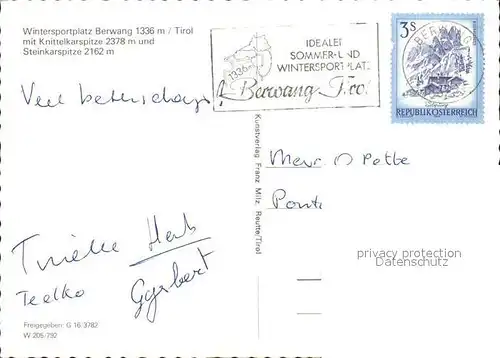 Wintersportplatz Berwang 1336 m / Tirol
mit Knittelkarspitze 2378 m und
Steinkarspitze 2162 m
IDEALER
SOMMER-UND
WINTERSPORTPLATZ
Berwang Tirol
1336 m
BERWANG
3S
REPUBLIK ÖSTERREICH
Veel beterschap!
Kunstverlag Franz Milz, Reutte/Tirol
Mevr.
privacy protection
Datenschutz
Teelko
Freigegeben: G 16 3782
W 205/792